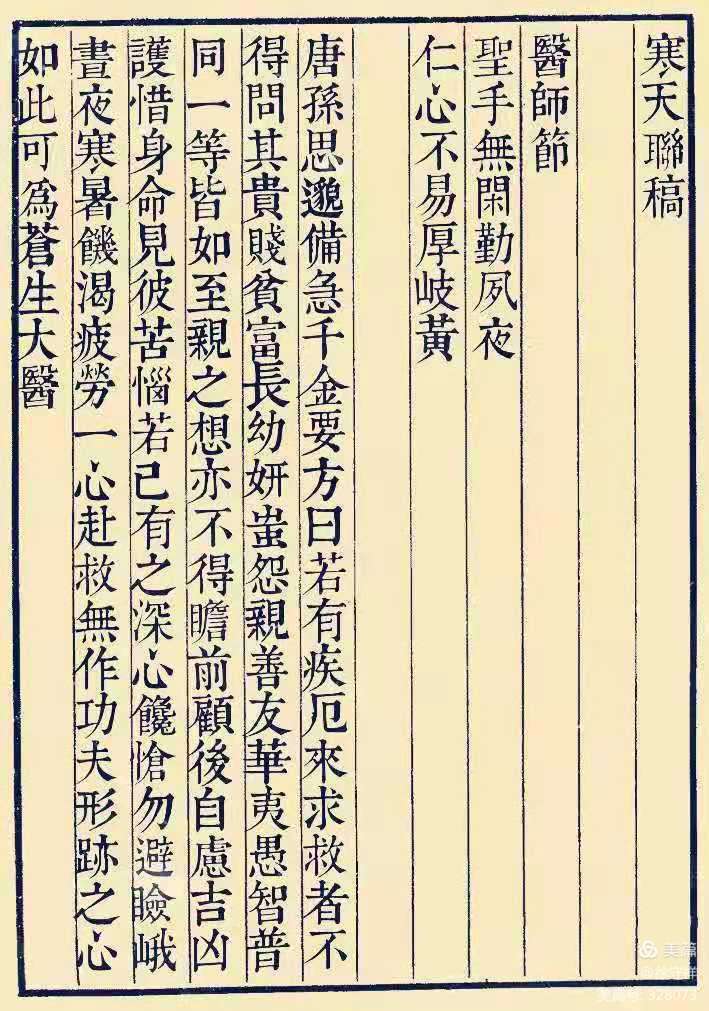 寒天聯稿
醫師節
聖手無閑勤夙夜
仁心不易厚岐黃
唐孫思邈備急千金要方曰若有疾厄來求救者不
得問其貴賤貧富長幼妍蚩怨親善友華夷愚智普
同一等皆如至親之想亦不得瞻前顧後自慮吉凶
護惜身命見彼苦惱若己有之深心饞愴勿避瞼峨
晝夜寒暑饑渴疲勞一心赴救無作功夫形跡之心
如此可為蒼生大醫
美篇